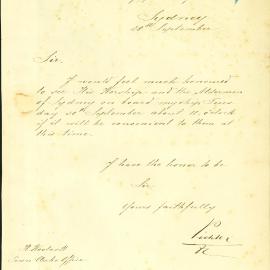 Sydney
September
Sir,
I would feel much honoured
to see His Worship and the Aldermen
of Sydney on board my ship Tues
day 30th September about 11 o'clock
if it will be convenient to them at
this time.
I have the honor to be
Sir
Yours faithfully
Town Clerks Office